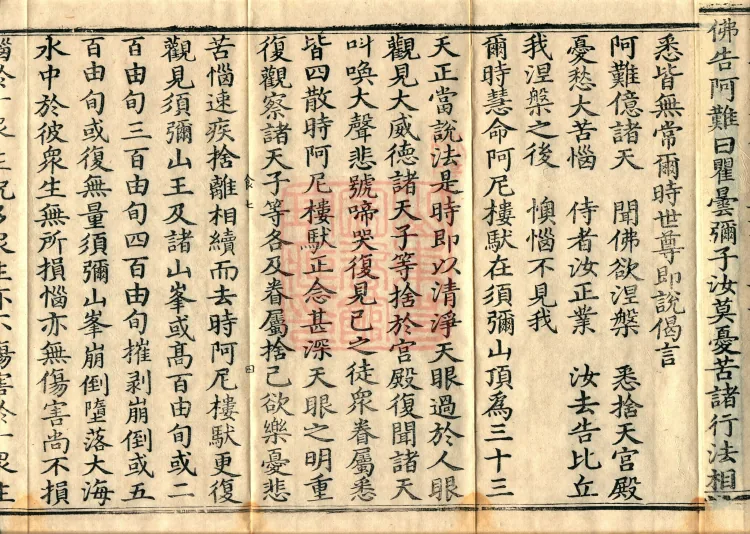 佛告阿難曰瞿曇彌子汝莫憂苦諸行法相
悉皆無常爾時世尊即說偈言
阿難億諸天　聞佛欲涅槃　悉捨天宮殿
憂愁大苦惱　侍者汝正業　汝去告比丘
我涅槃之後　懊惱不見我
爾時慧命阿尼樓馱在須彌山頂為三十三
天正當說法是時即以清淨天眼過於人眼
觀見大威德諸天子等捨於宮殿復聞諸天
叫喚大聲悲號啼哭復見已之徒衆眷屬悉
皆四散時阿尼樓馱正念甚深天眼之明重
復觀察諸天子等各及眷屬捨已欲樂憂悲
食七
四
苦惱速疾捨離相續而去時阿尼樓馱更復
觀見須彌山王及諸山峯或髙百由旬或二
百由旬三百由旬四百由旬摧剥崩倒或五
百由旬或復無量須彌山峯崩倒墮落大海
水中於彼衆生無所損惱亦無傷害尚不損
惱於一衆生況多衆生亦不傷害於一衆生